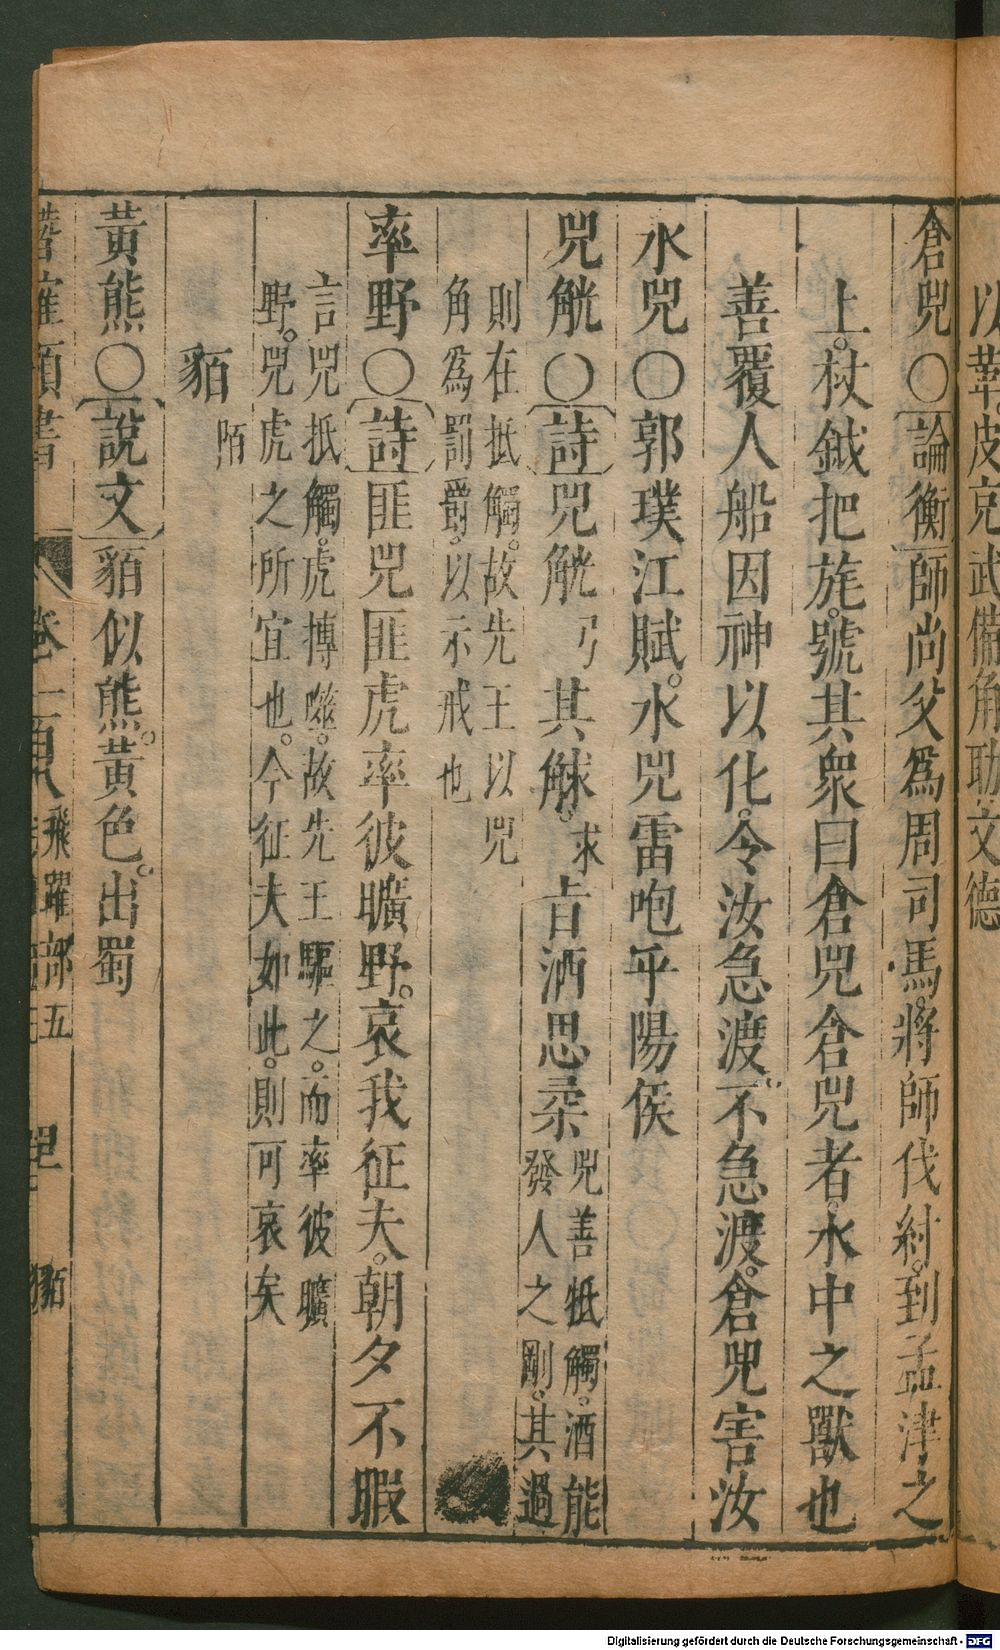 以華皮克武備角助文德
倉兕○論衡師尚父爲周司馬將師伐紂到孟津之
上杖鉞把旄號其衆曰倉兕倉兕者水中之獸也
善覆人船因神以化令汝急渡不急渡倉兕害汝
水兕○郭璞江賦水兕雷咆乎陽侯
兕觥○詩兕觥弓其觩求㫖酒思柔兕善牴觸酒能
發人之剛其過
則在抵觸故先王以兕
角爲罰爵以示戒也
率野○詩匪兕匪虎率彼曠野哀我征夫朝夕不暇
言兕抵觸虎搏噬故先王驅之而率彼曠
野兕虎之所宜也今征夫如此則可哀矣
貊陌
黃熊○說文貊似熊黃色出蜀
類書 卷一百八 飛躍部五 貊
Digitalisierung gefördert durch die Deutsche Forschungsgemeinschaft - DFG